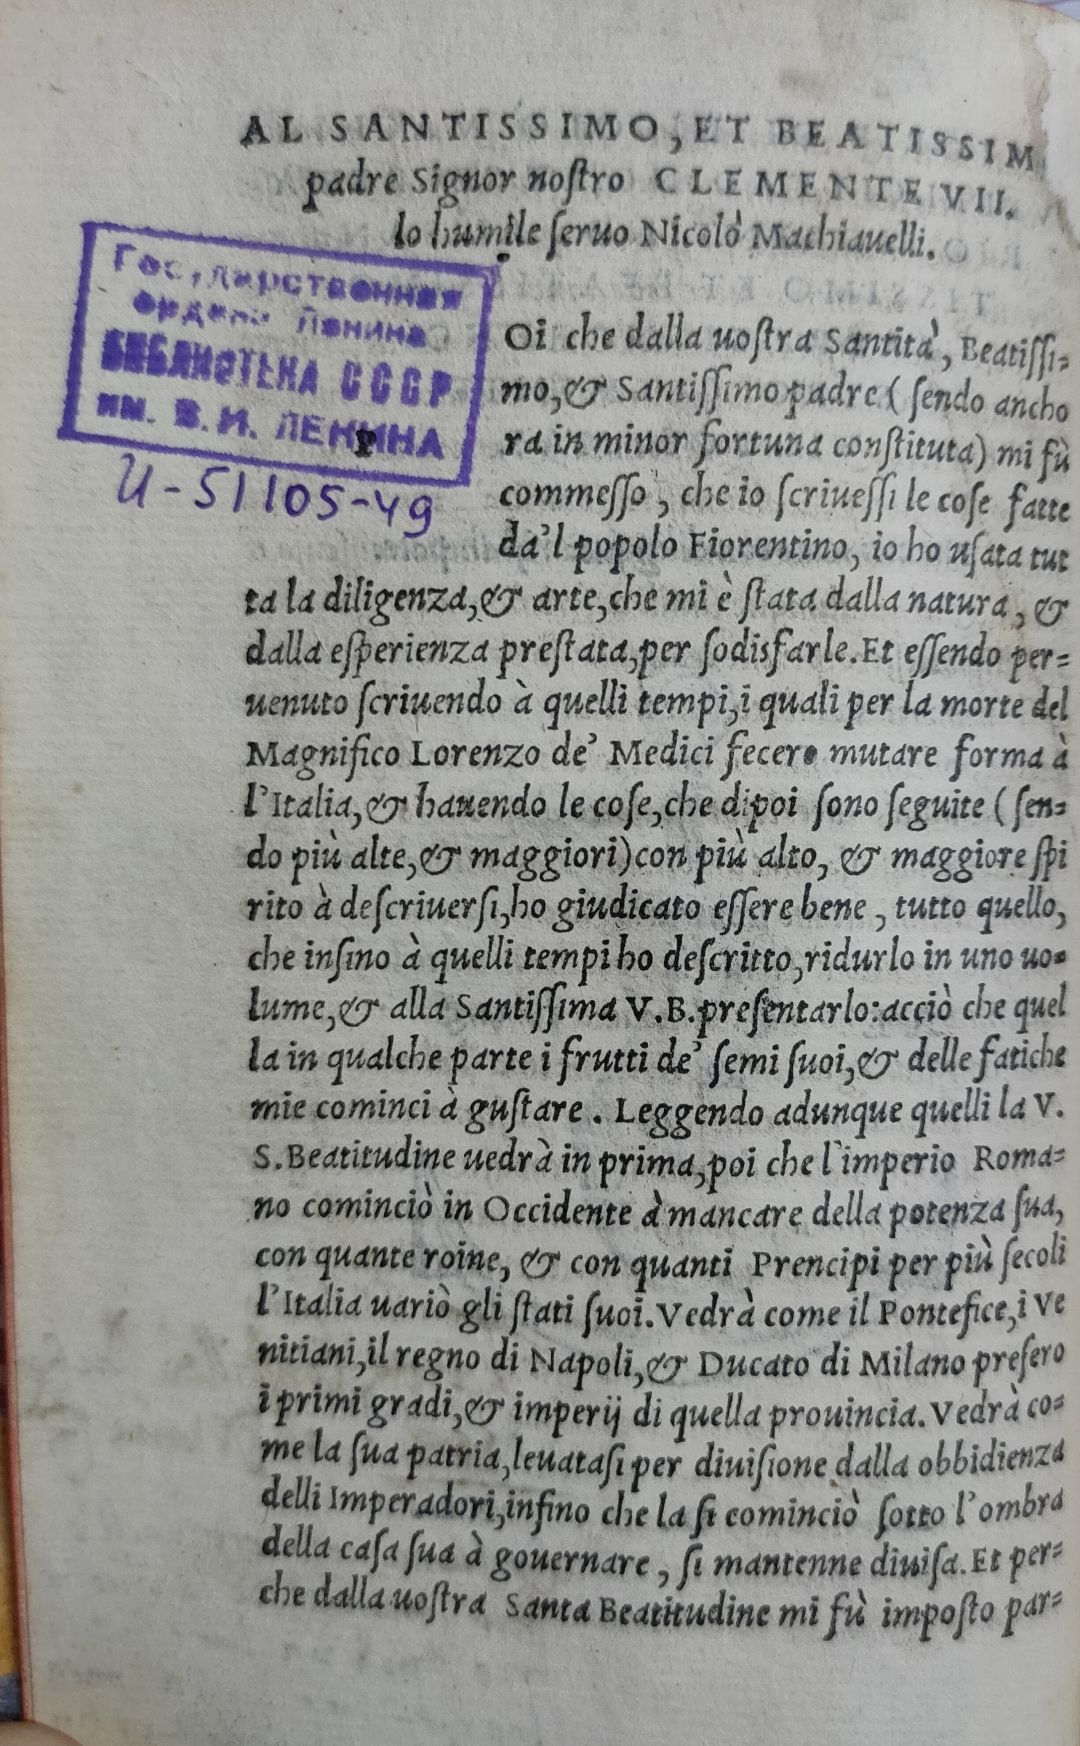 AL SANTISSIMO, ET BEATISSIM
padre Signor noſtro CLEMENTE VII.
lo humile ſeruo Nicolò Machiauelli.
Государственная
ордена Ленина
БИБЛИОТЕКА СССР
им. В. И. ЛЕНИНА
И-51105-49
P
Oi che dalla uoſtra Santità, Beatiſſi=
mo, & Santiſſimo padre ( ſendo ancho
ra in minor fortuna conſtituta) mi fù
commeſſo, che io ſcriueſſi le coſe fatte
da'l popolo Fiorentino, io ho uſata tut
ta la diligenza, & arte, che mi è ſtata dalla natura, &
dalla eſperienza preſtata, per ſodisfarle. Et eſſendo per=
uenuto ſcriuendo à quelli tempi, i quali per la morte del
Magnifico Lorenzo de' Medici fecero mutare forma à
l'Italia, & hauendo le coſe, che dipoi ſono ſeguite ( ſen=
do più alte, & maggiori) con più alto, & maggiore ſpi
rito à deſcriuerſi, ho giudicato eſſere bene, tutto quello,
che inſino à quelli tempi ho deſcritto, ridurlo in uno uo=
lume, & alla Santiſſima V. B. preſentarlo: acciò che quel
la in qualche parte i frutti de' ſemi ſuoi, & delle fatiche
mie cominci à guſtare. Leggendo adunque quelli la V.
S. Beatitudine uedrà in prima, poi che l'imperio Roma=
no cominciò in Occidente à mancare della potenza ſua,
con quante roine, & con quanti Prencipi per più ſecoli
l'Italia uariò gli ſtati ſuoi. Vedrà come il Pontefice, i Ve
nitiani, il regno di Napoli, & Ducato di Milano preſero
i primi gradi, & imperij di quella prouincia. Vedrà co=
me la ſua patria, leuataſi per diuiſione dalla obbidienza
delli Imperadori, infino che la ſi cominciò ſotto l'ombra
della caſa ſua à gouernare, ſi mantenne diuiſa. Et per=
che dalla uoſtra Santa Beatitudine mi fù impoſto par=